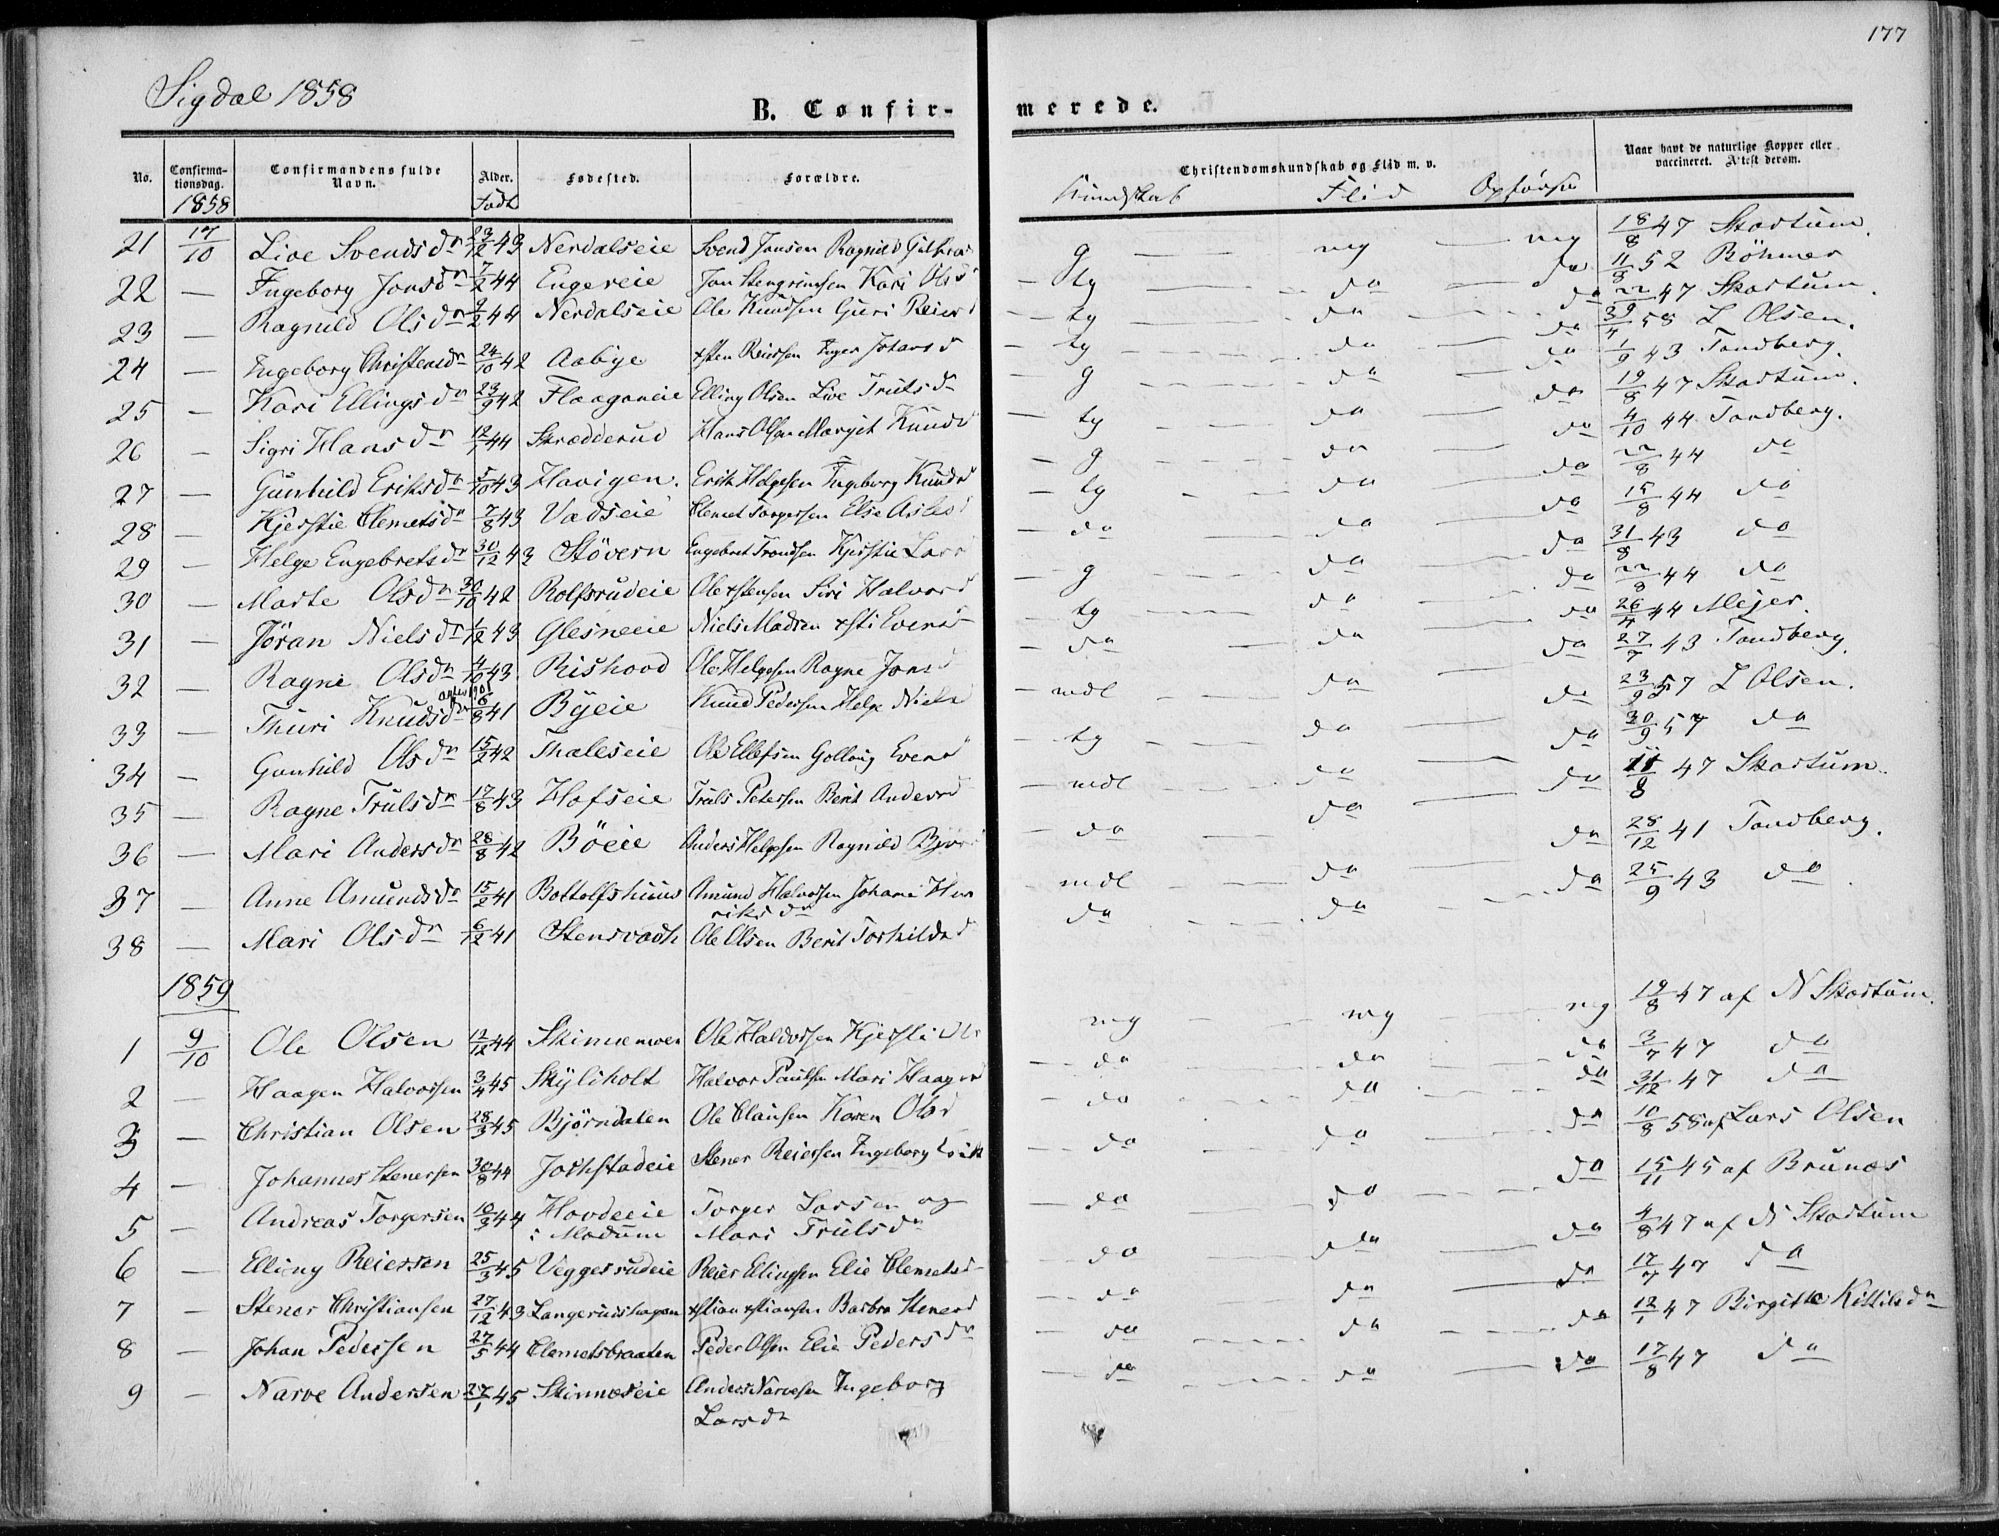 177
Sigdal 1858
B. Confir- merede.
No. Confirma-tionsdag. Confirmandens fulde Navn. Alder. Fødested. Forældre. Christendomskundskab og Flid m. v. Naar havt de naturlige Kopper eller vaccineret. Attest derom.
1858 Født Kundskab Flid Opførsel
21 17/10 Live Svendsdn 23/12 43 Nerdalseie Svend Jonsen Ragnild g mg mg 18/8 47 Skartum.
22 — Ingeborg Jonsdn 7/2 44 Engereie Jon Stengrimsen Kari Olsd tg da da 11/8 52 Böhmer
23 — Ragnild Olsdn 9/2 44 Nerdalseie Ole Knudsen Guri Reiersd tg da da 22/ 47 Skartum.
24 — Ingeborg Christensdn 24/10 42 Aabye xsten Reiersen Inger Johansd tg da da 58 L Olsen.
25 — Kari Ellingsdn 23/9 42 Flaaganeie Elling Olsen Live Trulsdn g da da 1/9 43 Tandberg.
26 — Sigri Hansdn 12/1 44 Skrædderud Hans Olsen Margit Knudsd tg da da 19/8 47 Skartum.
27 — Gunhild Eriksdn 5/10 43 Havigen. Erik Helgesen Ingeborg Knudsd g da da 4/10 44 Tandberg.
28 — Kjerstie Clemetsdn 7/8 43 Vadseie Clemet Torgersen Else Aslesd tg da da 22/8 44 da
29 — Helge Engebretsdn 30/12 43 Støvern Engebret Trondsen Kjerstie Larsd da da da 15/8 44 da
30 — Marte Olsdn 30/10 42 Rolfsrudeie Ole xstensen Siri Halvorsd g da da 31/8 43 da
31 — Jöran Nielsdn 1/12 43 Glesneeie Niels Madsen xsti Evensd tg da da 22/8 44 da
32 — Ragne Olsdn 4/10 43. Rishovd Ole Helgesen Ragne Jonsd da da da 26/4 44 Mejer.
33 — Thuri Knudsdn 6/8 41 Byeie Knud Pedersen Helge Nielsd mdl da da 27/7 43 Tandberg.
34 — Gunhild Olsdn 15/2 42 Thaleseie Ole Ellefsen Gollaug Evensd tg da da 23/9 57 L Olsen.
35 — Ragne Trulsdn 17/8 43 Hofseie Truls Petersen Berit Andersd mdl da da 30/9 57 da
36 — Mari Andersdn 28/8 42 Böeie Anders Helgesen Ragnild da da da 11/8 47 Skartum.
37 — Anne Amundsdn 15/2 41 Bottolfshuus Amund Halvorsen Johane Hen
riksdn mdl da da 28/12 41 Tandberg.
38 — Mari Olsdn 6/12 41 Stensvadh Ole Olsen Berit Torkildsd da da da 25/9 43 da
1859
1 9/10 Ole Olsen 12/12 44 Skinnemoen Ole Halvorsen Kjersti Ols mg mg mg 19/8 47 af N Skartum.
2 — Haagen Halvorsen 3/4 45 Skyliholt Halvor Paulsen Mari Haagend da da da 3/7 47 da
3 — Christian Olsen 28/3 45 Bjørndalen Ole Clausen Karen Olsd da da da 31/12 47 da
4 — Johannes Stenersen 30/8 44 Jochstadeie Stener Reiersen Ingeborg da da da 10/8 58 af Lars Olsen
5 — Andreas Torgersen 10/3 44 Hovdeeie Torger Larsen og da da da 15/11 45 af Brunæs
i Modum Mari Trulsdn
6 — Elling Reiersen 25/3 45 Veggesrudeie Reier Ellingsen Elie Clemetsd da da da 4/8 47 af N Skartum
7 — Stener Christiansen 27/12 43 Langerudshagen xstian xstiansen Barbra Stenersd da da da 17/7 47 da
8 — Johan Pedersen 27/5 44 Clemetsbraaten Peder Olsen Elie Pedersdn da da da 12/1 47 Birgitte Kittilsdn
9 — Narve Andersen 27/1 45 Skinnæseie Anders Narvesen Ingeborg da da da 17/8 47 da
Larsdn